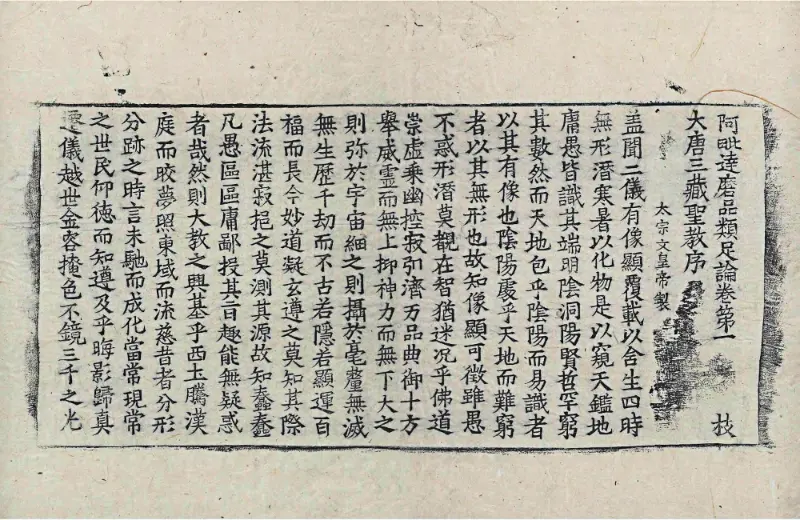 阿毗達磨品類足論卷第一 枝
大唐三藏聖教序
太宗文皇帝製
盖聞二儀有像顯覆載以含生四時
無形潛寒暑以化物是以窺天鑑地
庸愚皆識其端明陰洞陽賢哲罕窮
其數然而天地包乎陰陽而易識者
以其有像也陰陽處乎天地而難窮
者以其無形也故知像顯可徵雖愚
不惑形潛莫覩在智猶迷况乎佛道
崇虛乘幽控寂弘濟万品典御十方
舉威靈而無上抑神力而無下大之
則弥於宇宙細之則攝於毫釐無滅
無生歷千劫而不古若隱若顯運百
福而長今妙道凝玄遵之莫知其際
法流湛寂挹之莫測其源故知蠢蠢
凡愚區區庸鄙投其旨趣能無疑惑
者哉然則大教之興基乎西土騰漢
庭而皎夢照東域而流慈昔者分形
分跡之時言未馳而成化當常現常
之世民仰德而知遵及乎晦影歸真
遷儀越世金容掩色不鏡三千之光